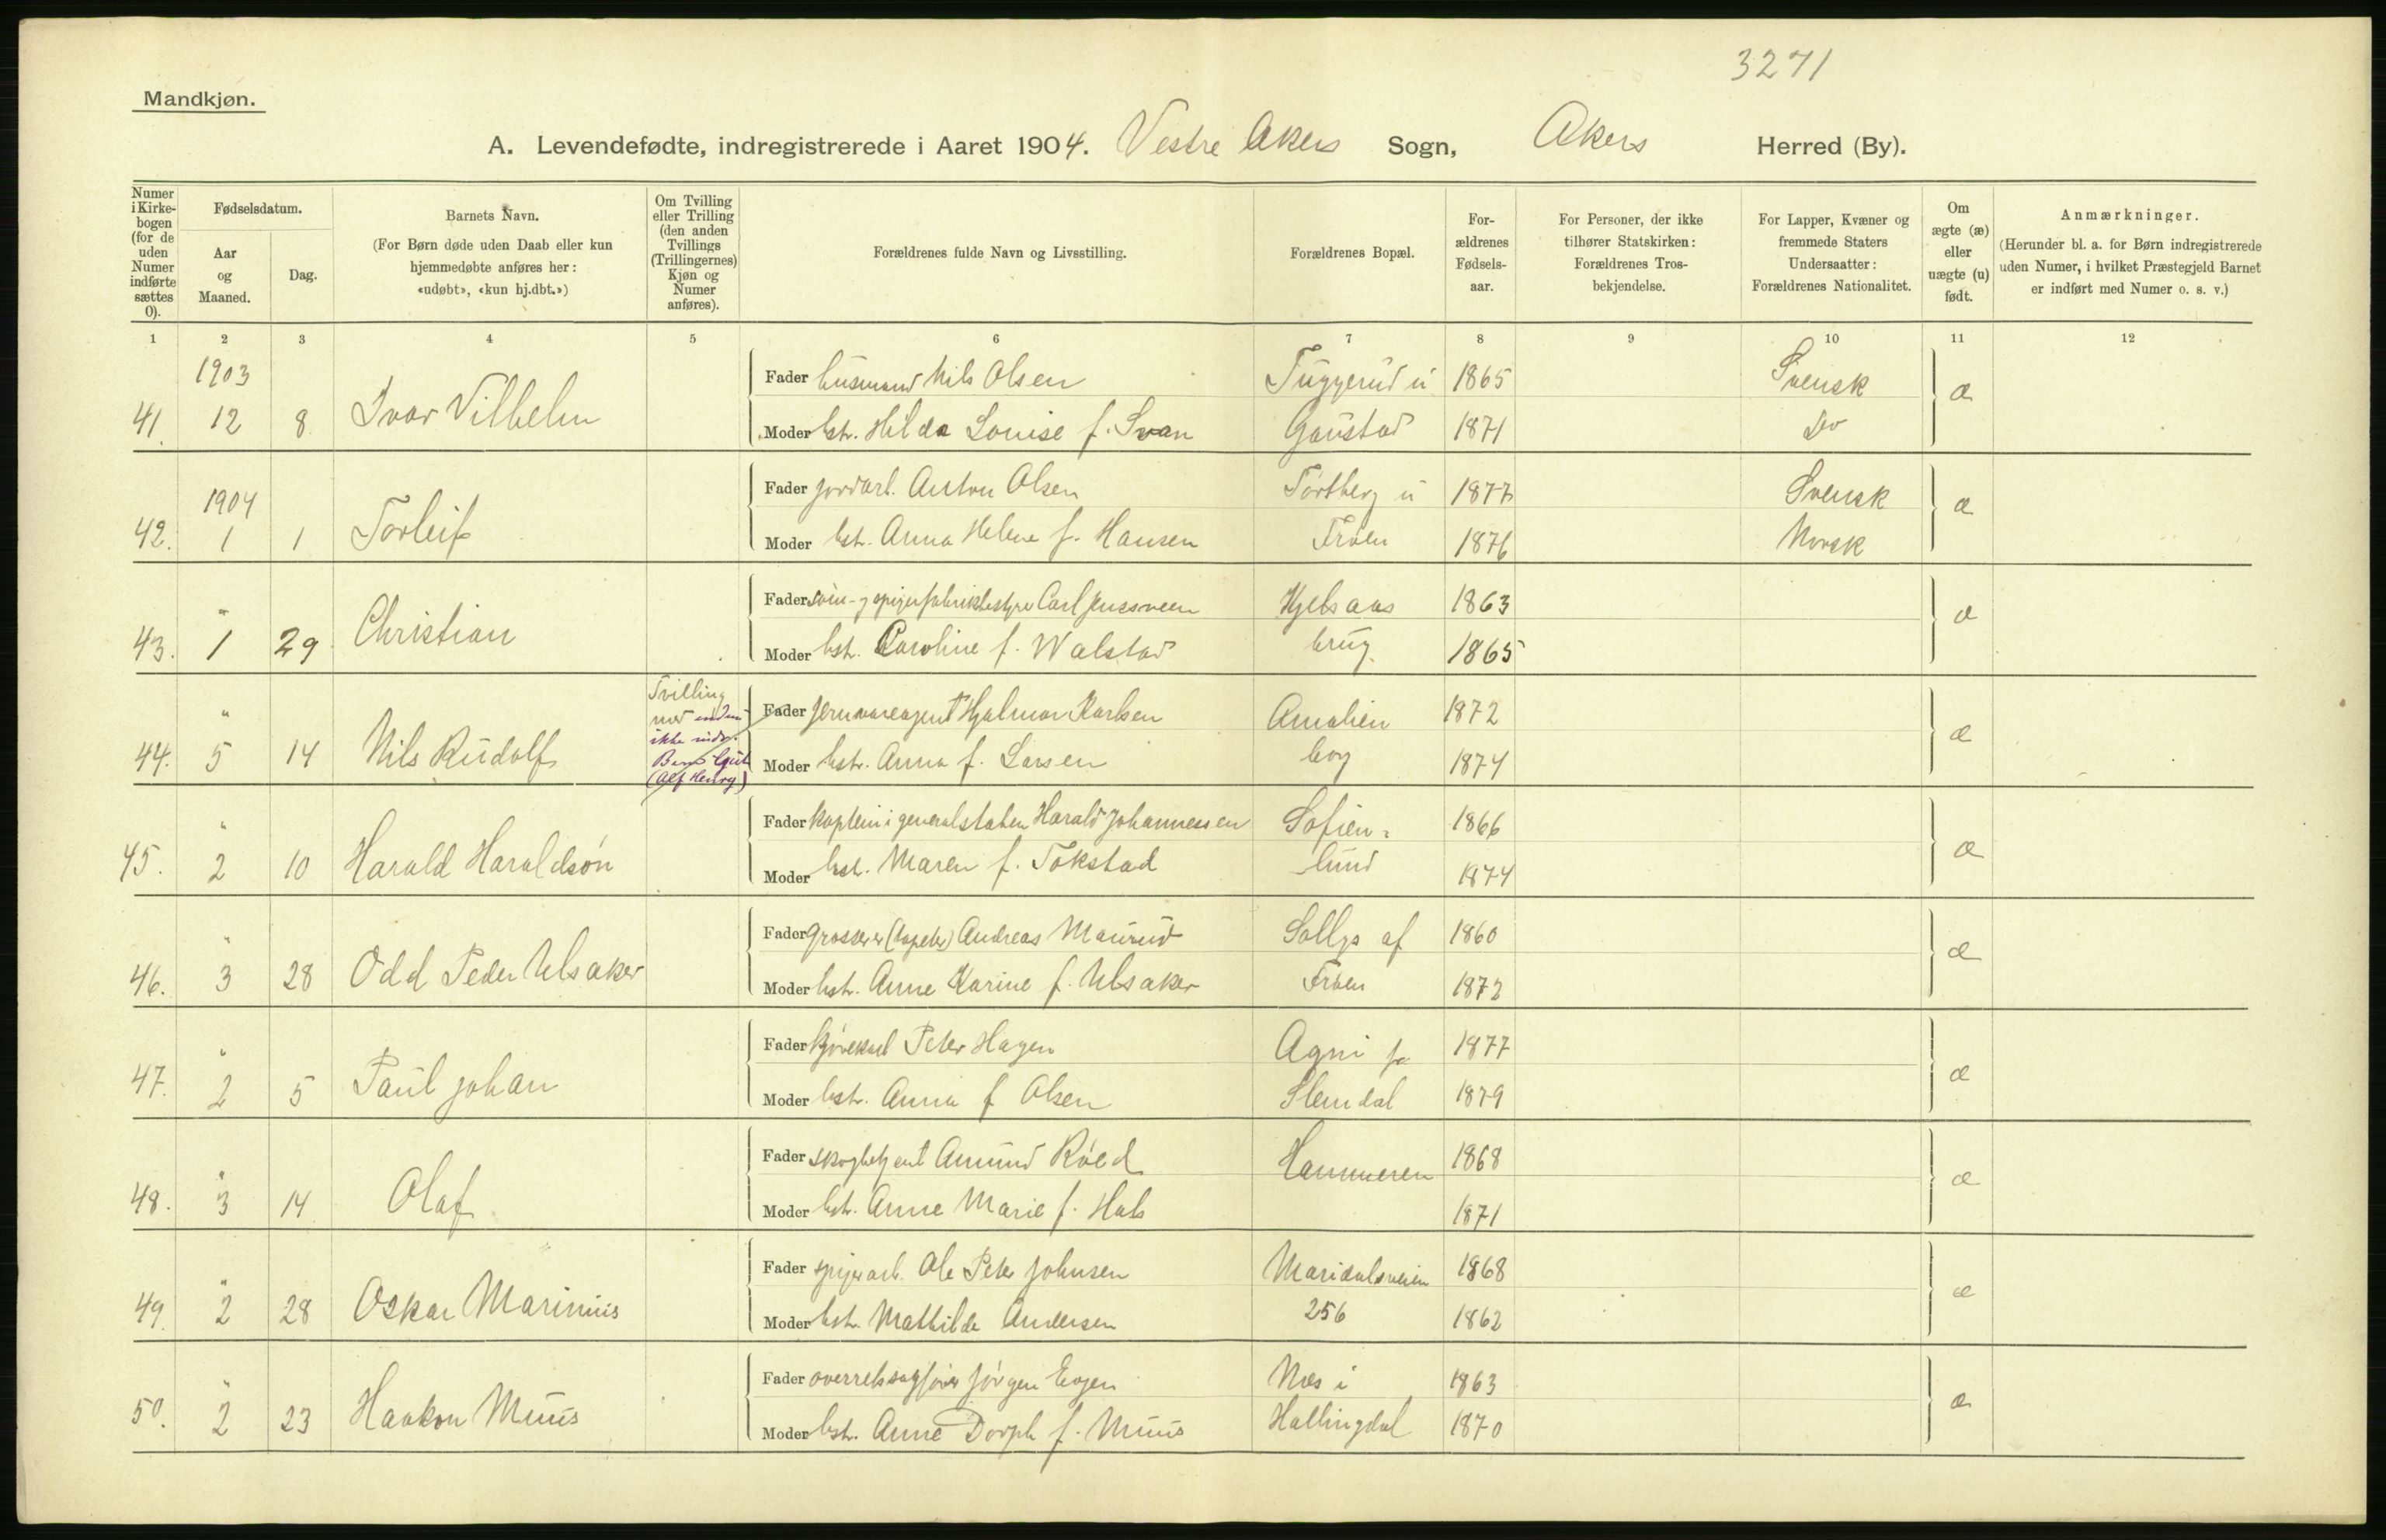 3271
Mandkjøn.
A. Levendefødte, indregistrerede i Aaret 1904. Vestre Akers Sogn, Akers Herred (By).
Numer i Kirke-bogen (for de uden Numer indførte sættes 0).
Fødselsdatum.
Aar og Maaned.
Dag.
Barnets Navn.
(For Børn døde uden Daab eller kun hjemmedøbte anføres her: «udøbt», «kun hj.dbt.»)
Om Tvilling eller Trilling (den anden Tvillings (Trillingernes) Kjøn og Numer anføres).
Forældrenes fulde Navn og Livsstilling.
Forældrenes Bopæl.
For-ældrenes Fødsels-aar.
For Personer, der ikke tilhører Statskirken: Forældrenes Tros-bekjendelse.
For Lapper, Kvæner og fremmede Staters Undersaatter: Forældrenes Nationalitet.
Om ægte (æ) eller uægte (u) født.
Anmærkninger.
(Herunder bl. a. for Børn indregistrerede uden Numer, i hvilket Præstegjeld Barnet er indført med Numer o. s. v.)
1 2 3 4 5 6 7 8 9 10 11 12
1903
Fader husmand Nils Olsen Tuggerud u 1865 Svensk
41. 12 8 Ivar Vilhelm æ
Moder hst. Hilda Louise f. Svan Gaustad 1871 Do
1904
Fader jordarb. Anton Olsen Tørtberg u 1877 Svensk
42. 1 1 Torleif æ
Moder hst. Anna Helene f. Hansen Frøen 1876 Norsk
Fader Carl Jenssveen Kjelsaas 1863
43. " 1 29 Christian æ
Moder hst. Caroline f. Walstad brug. 1865
Tvilling
med
ikke indr.
Barn Gut
(Alf Henry)
Fader jernvareagent Hjalmar Karlsen Amalien 1872
44. " 5 14 Nils Rudolf æ
Moder hst. Anna f. Larsen borg 1874
Fader kaptein i generalstaben Harald Johannessen Sofien- 1866
45. " 2 10 Harald Haraldsøn æ
Moder hst. Maren f. Tokstad lund 1874
Fader grosserer (tapeter) Andreas Maurud Sollys af 1860
46. " 3 28 Odd Peder Ulsaker æ
Moder hst. Anne Karine f. Ulsaker Frøen 1872
Fader kjørekarl Peter Hagen Agni pr 1877
47. " 2 5 Paul Johan æ
Moder hst. Anna f Olsen Slemdal 1879
Fader skogbetjent Amund Røed Hammeren 1868
48. " 3 14 Olaf æ
Moder hst. Anne Marie f. Hals 1871
Fader spigerarb. Ole Peter Johnsen Maridalsveien 1868
49. " 2 28 Oskar Marinius æ
Moder hst. Mathilde Andersen 256 1862
Fader overretssagfører Jørgen Evjen Nes i 1863
50. " 2 23 Haakon Muus æ
Moder hst. Anne Dorph f. Muus Hallingdal 1870